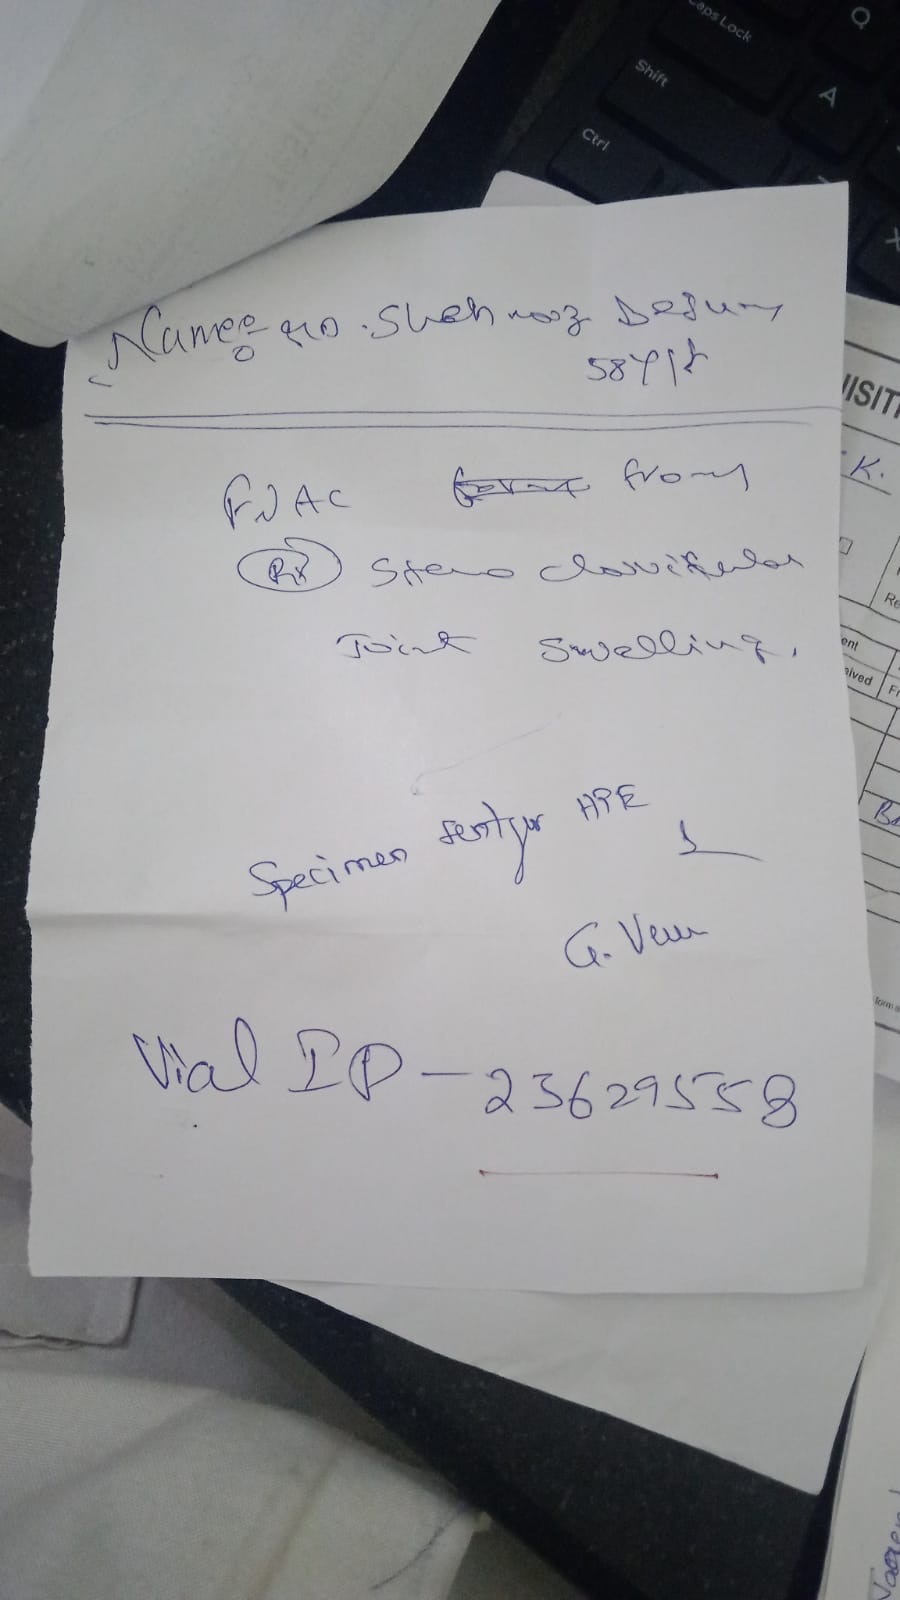 Caps Lock
Q
Shift
A
Ctrl
X
Name: Shehnaz Begum
58Y/F
FNAC from
Rt Sterno clavicular
Joint Swelling.
Specimen sent for HPE
G. Venu
Vial ID - 23629558
K.
Re
ent
eived
Fr
form a